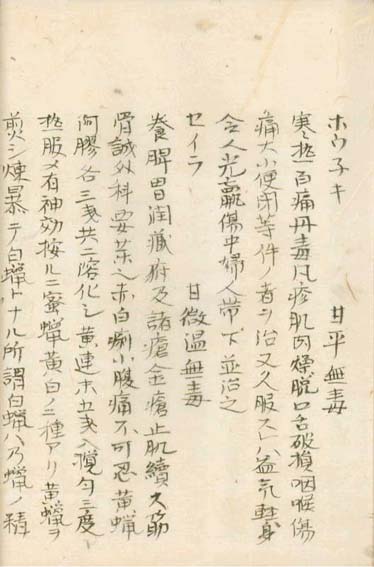 ホウ子キ　甘平無毒
寒热百痛丹毒凡疹肌肉爛脱口舌破損咽喉傷
痛大小便閉等件ノ者ヲ治又久服スレハ益気軽身
令人光羸傷中婦人帯下並治之
セイラ　甘微温無毒
養脾胃潤臓府及諸瘡金瘡止肌續欠筋
骨誠外科要薬之赤白痢小腹痛不可忍黄蝋
阿膠各三戔共ニ溶化シ黄連末五戔入攪匀三度
热服メ有神効按ルニ蜜蝋黄白ノ二種アリ黄蝋ヲ
煎シ煉暴テ白蝋トナル所謂白蝋ハ乃蝋ノ精